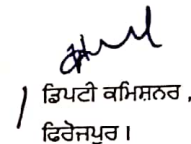 ਡਿਪਟੀ ਕਮਿਸ਼ਨਰ,
ਫਿਰੋਜਪੁਰ।